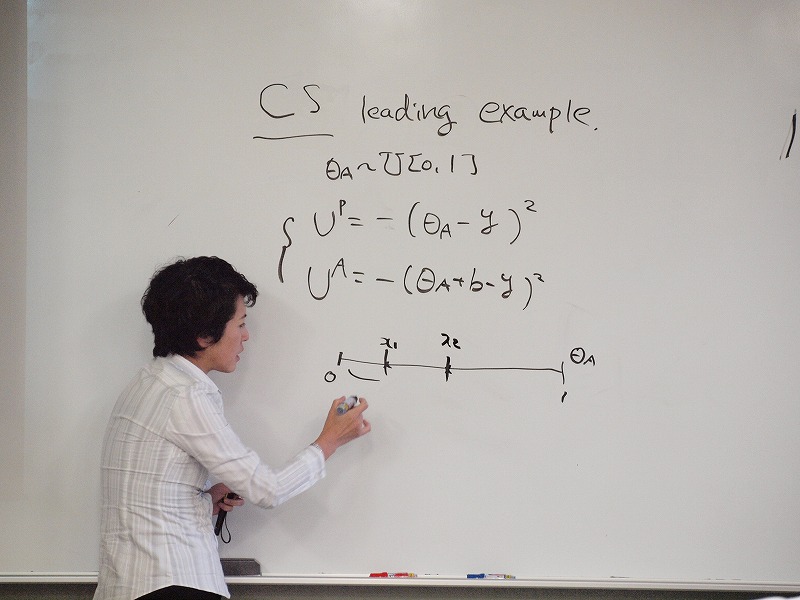 CS leading example.
θA ~ U[0,1]
U^P = -(θA - y)^2
U^A = -(θA + b - y)^2
x1 x2
0 1 θA